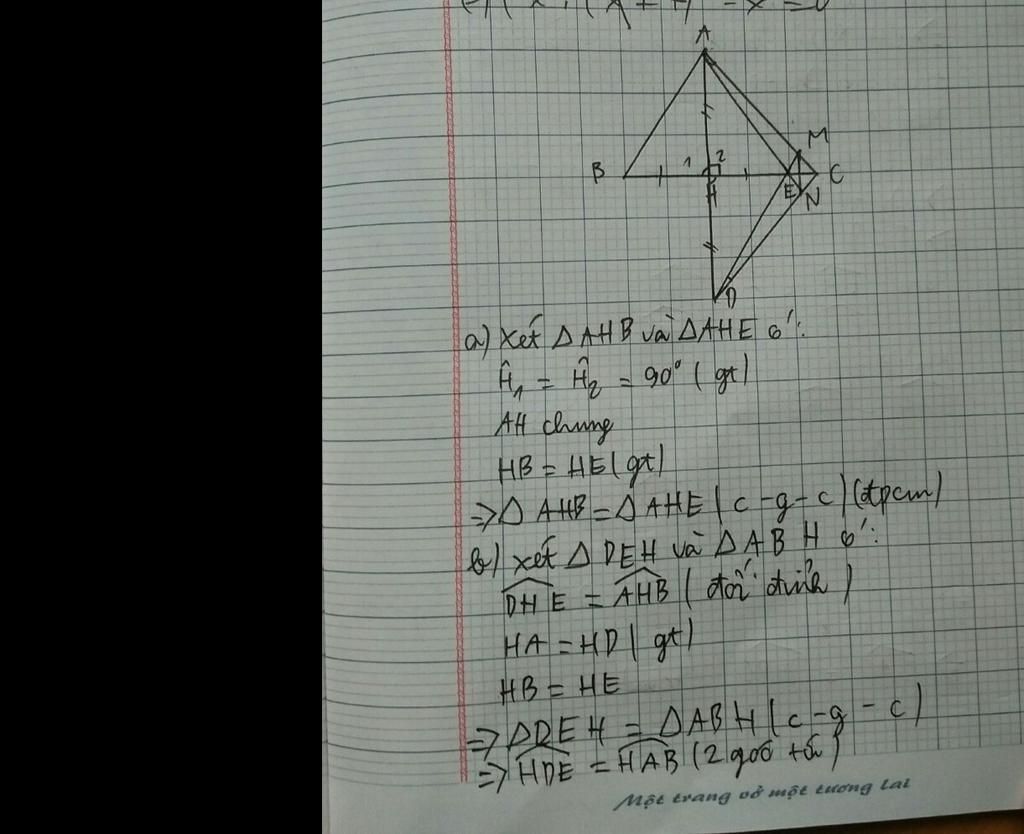 A
M
B 1 2 C
H E N
D
a) Xét Δ AHB và Δ AHE có:
Ĥ₁ = Ĥ₂ = 90° (gt)
AH chung
HB = HE (gt)
=> Δ AHB = Δ AHE (c - g - c) (đpcm)
b) Xét Δ DEH và Δ ABH có:
DHE = AHB (đối đỉnh)
HA = HD (gt)
HB = HE
=> ΔDEH = ΔABH (c - g - c)
=> HDE = HAB (2 góc tứ)
Một trang vở một tương lai